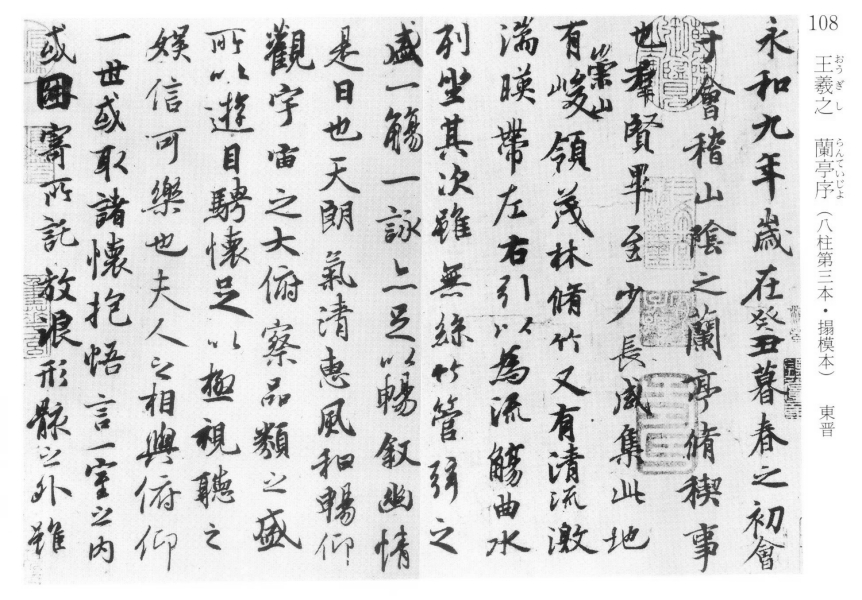 108
王羲之 蘭亭序（八柱第三本・搨模本） 東晋
おうぎし
らんていじょ
永和九年歲在癸丑暮春之初會
于會稽山陰之蘭亭脩稧事
也羣賢畢至少長咸集此地
有崇山峻領茂林脩竹又有清流激
湍暎帶左右引以為流觴曲水
列坐其次雖無絲竹管弦之
盛一觴一詠亦足以暢叙幽情
是日也天朗氣清惠風和暢仰
觀宇宙之大俯察品類之盛
所以遊目騁懷足以極視聽之
娛信可樂也夫人之相與俯仰
一世或取諸懷抱悟言一室之內
或因寄所託放浪形骸之外雖